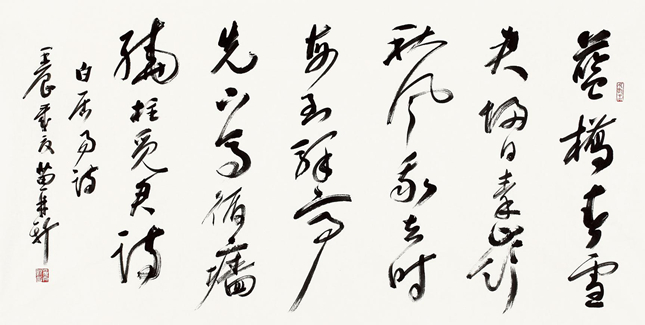 藍橋春雪
君歸日秦嶺
秋風我去時
每到驛亭
先下馬循墻
繞柱覓君詩
白居易詩
壬辰 苗再新